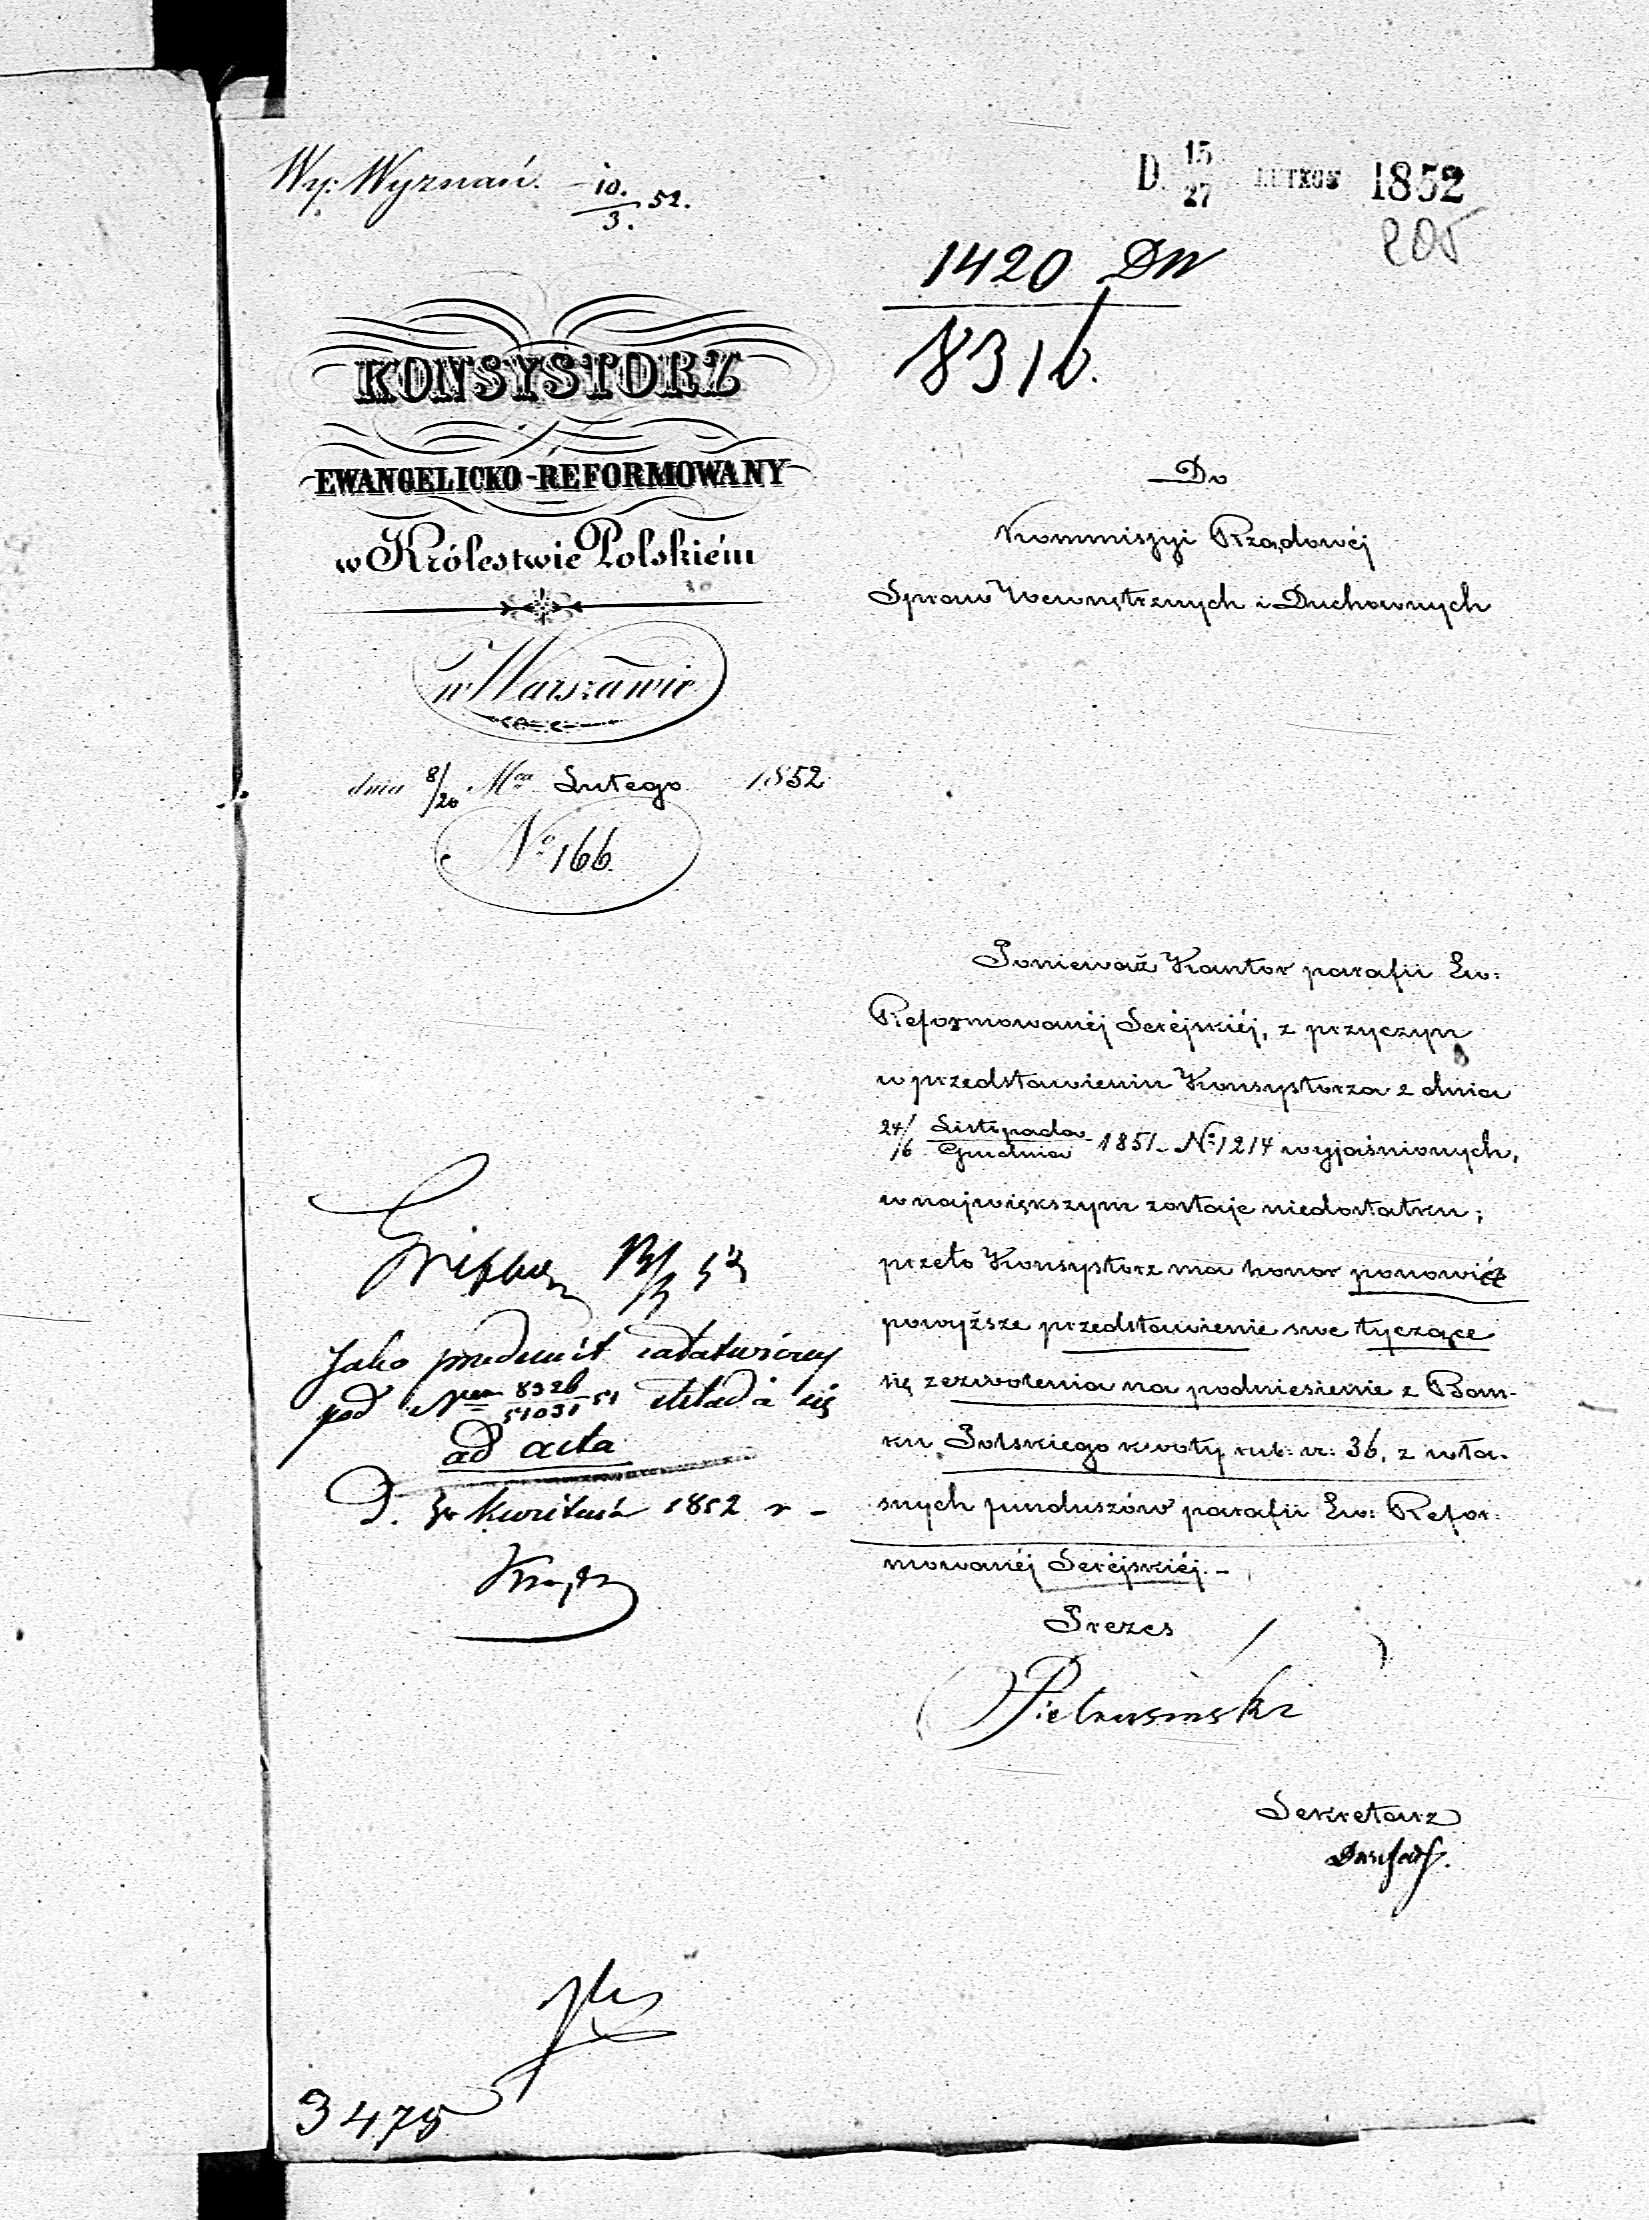 Wy: Wyznań. 10./3. 52.
D. 15/27 LUTEGO 1852
205
1420 DW
831b.
KONSYSTORZ
EWANGELICKO-REFORMOWANY
w Królestwie Polskiém
w Warszawie
dnia 8/20 Mca Lutego 1852
No 166.
Do
Kommissyi Rządowéj
Spraw Wewnętrznych i Duchownych
Ponieważ Kantor parafii Ew:
Reformowanéj Seréjskiéj, z przyczyn
w przedstawieniu Konsystorza z dnia
24/6 Listopada/Grudnia 1851. No 1214 wyjaśnionych,
w największym zostaje niedostatku;
przeto Konsystorz ma honor ponowić
powyższe przedstawienie swe tyczące
się zezwolenia na podniesienie z Ban-
ku Polskiego kwoty rub: sr: 36, z wła-
snych funduszów parafii Ew: Refor-
mowanéj Seréjskiéj.-
Prezes
Pietrusiński
Sekretarz
Jako przedmiot załatwiony
pod Nrem 832b/51031 51 składa się
ad acta
D. Kwietnia 1852 r -
3475